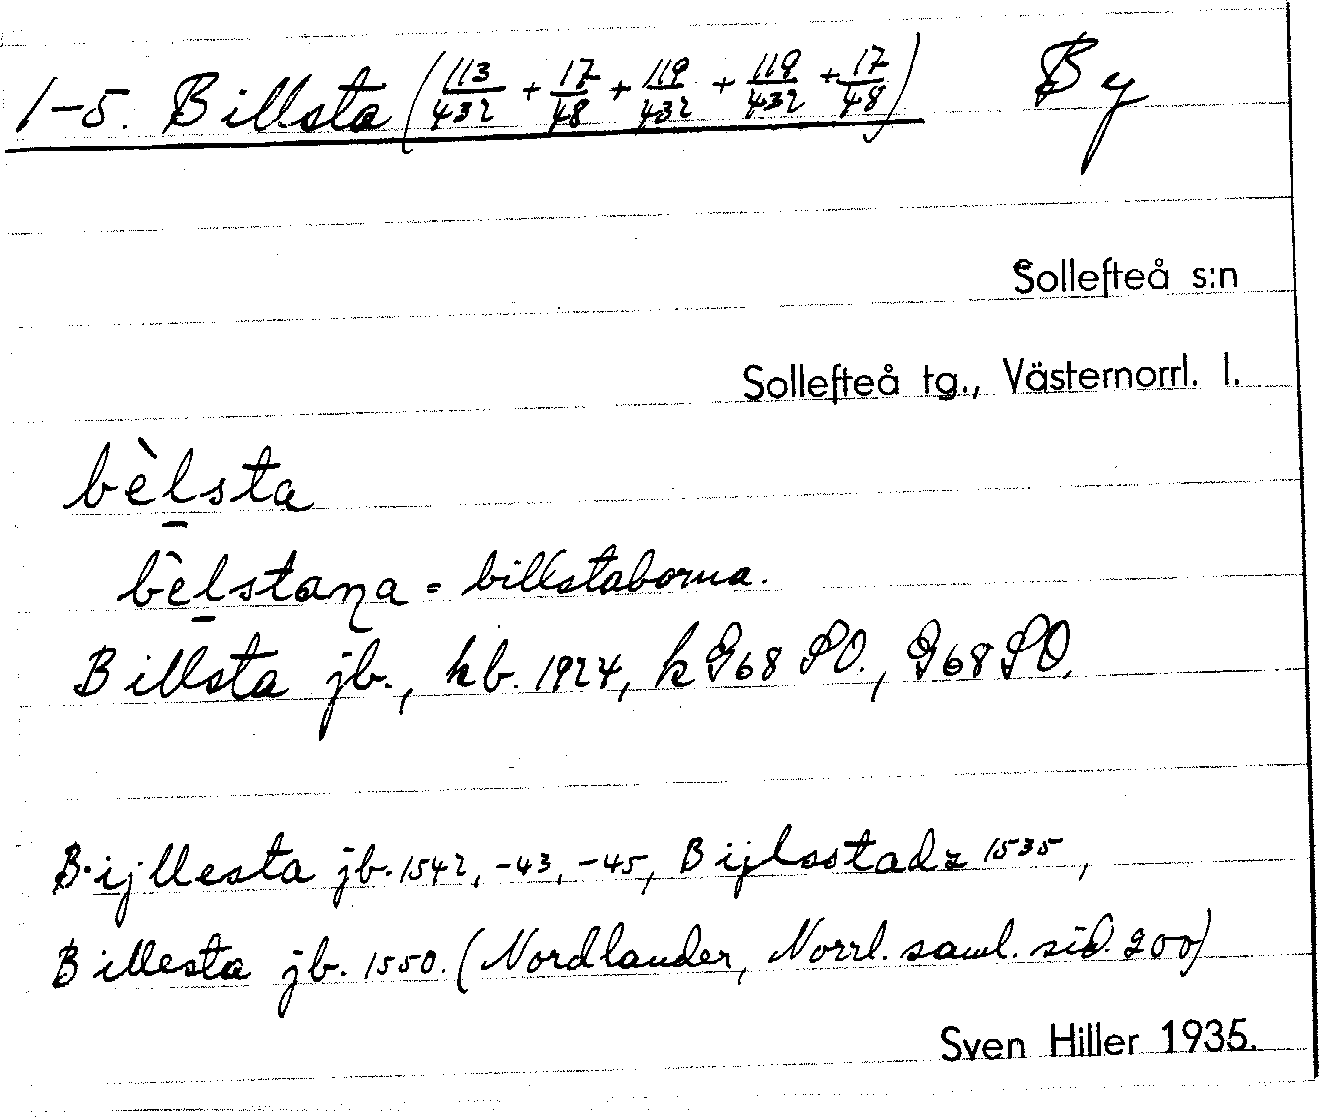 1-5. Billsta (113/432 + 17/48 + 119/432 + 119/432 + 17/48) By
Sollefteå s:n
Sollefteå tg., Västernorrl. l.
bèl̠sta
bèl̠staṇa = billstaborna.
Billsta jb., kb. 1924, k G68 SO., G68 SO.
Bijllesta jb. 1542, -43, -45, Bijlsstadz 1535,
Billesta jb. 1550. (Nordlander, Norrl. saml. sid. 200)
Sven Hiller 1935.